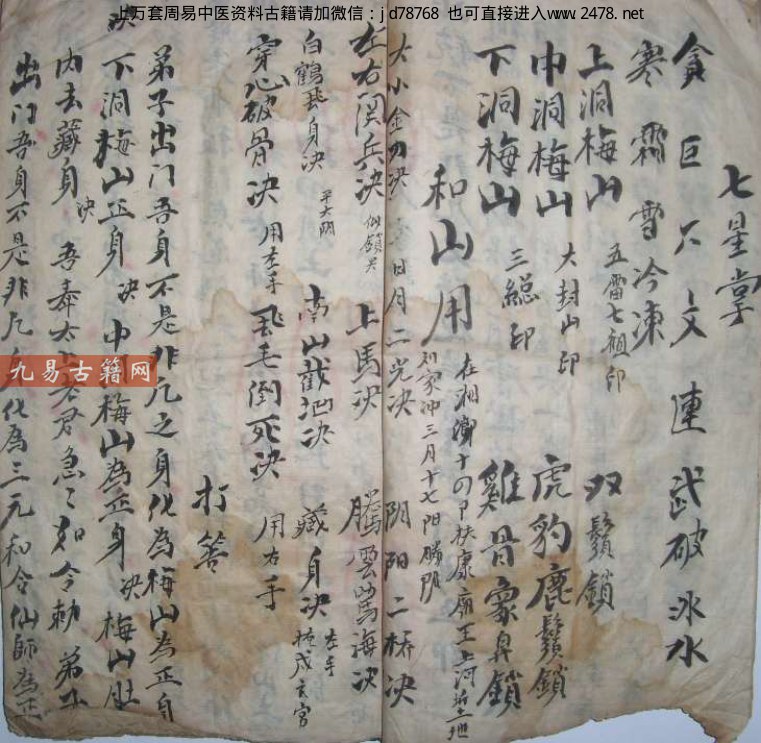 上万套周易中医资料古籍请加微信：jd78768 也可直接进入www.2478.net
七星掌
貪巨 文連武破冰水
寒霜雪冷凍
上洞梅山 五雷七祖印 双鬚鎖
中洞梅山 大封山印 虎豹鹿鬚鎖
下洞梅山 三總印 雞骨象鼻鎖
和山用 在湘 十四甲扶康廟王上河 土地
刘家冲三月十七阳勝阴
大小金刀决 日月二光决 阴阳二桥决
左右関兵决 上馬决 騰雲駕海决
白鶴飛身决 南山截 决 藏身决 左手 戌亥宮
穿心破骨决 用左手 飛毛倒死决 用右手
打筶
弟子出门吾身不是非凡之身化為梅山為正身
决 下洞梅山正身 决 中洞梅山為正身 决 梅山肚
内去藏身 决 吾奉太上老君急〻如令勅 弟子
出门吾身不是非凡 化為三元和合仙師為正
九易古籍网